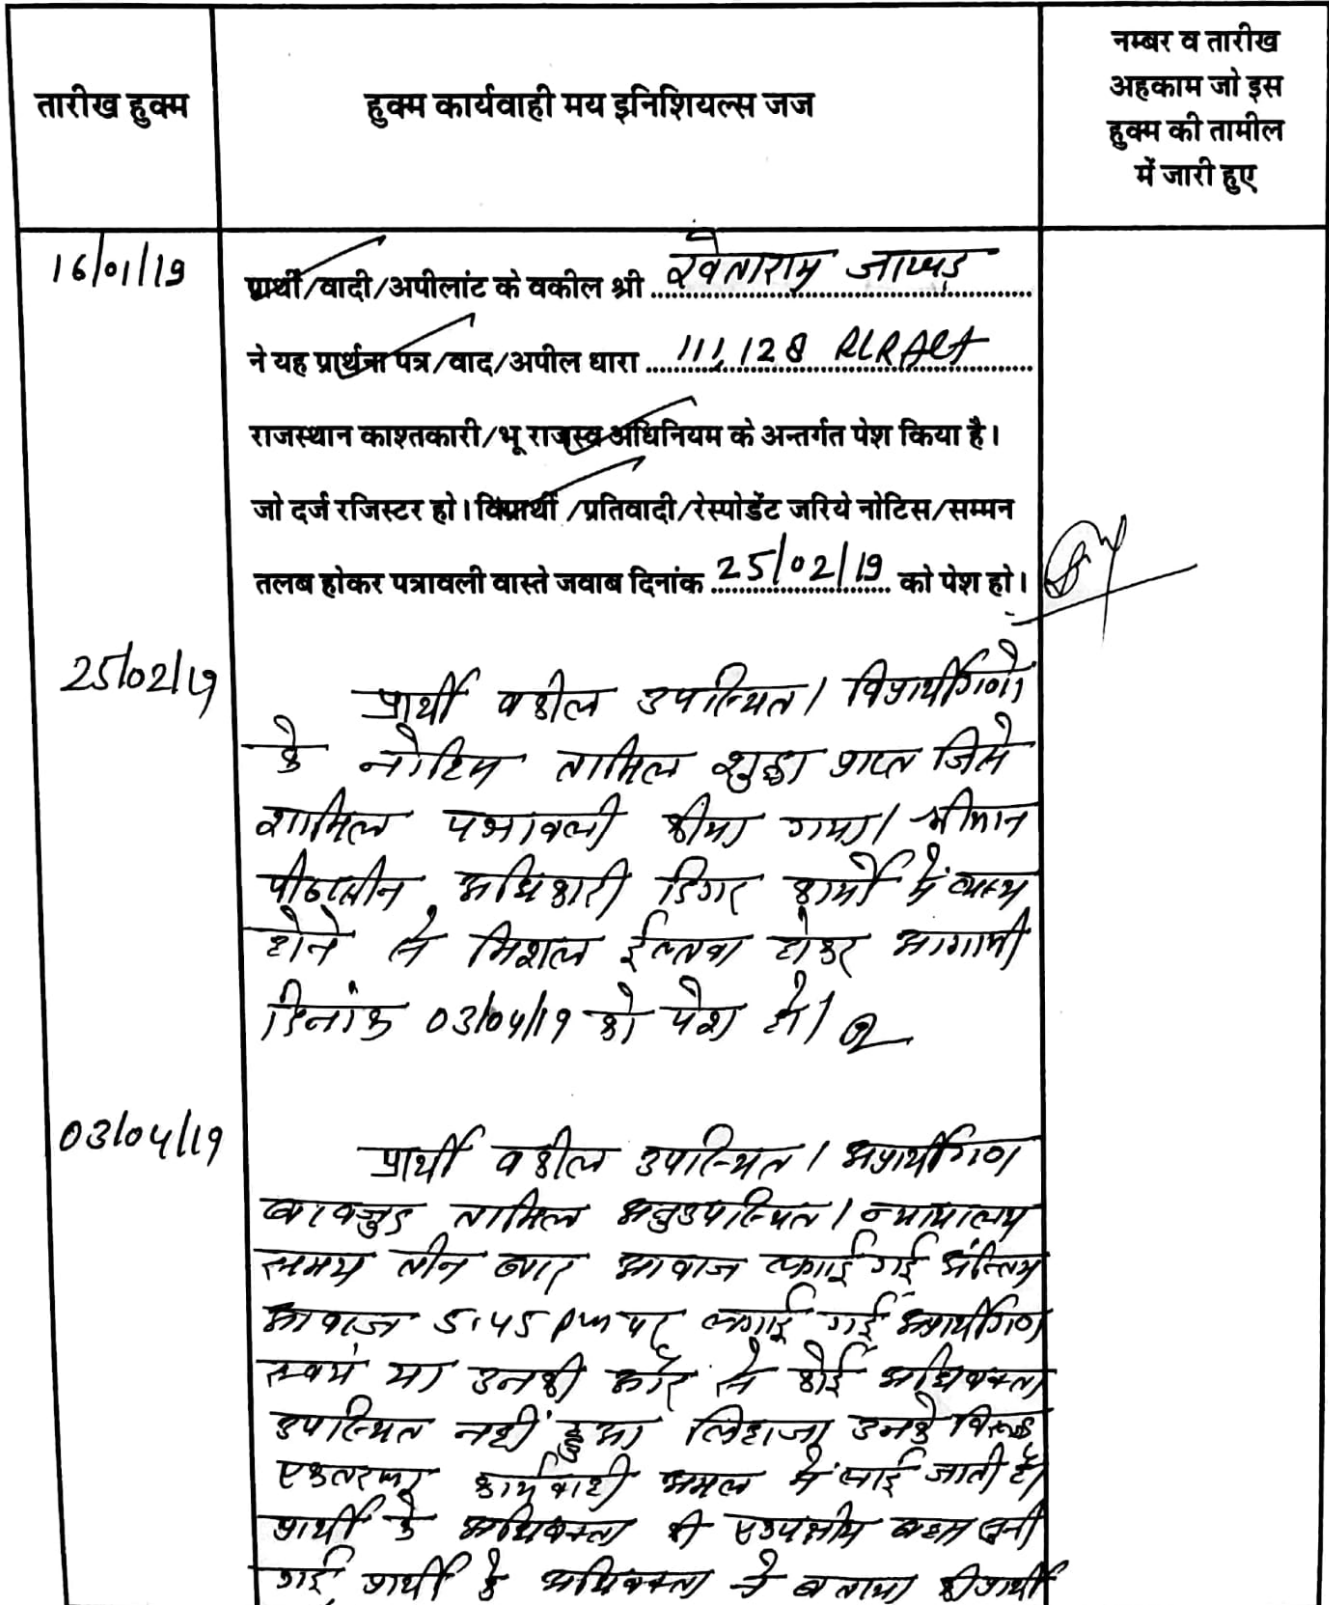 तारीख हुक्म
हुक्म कार्यवाही मय इनिशियल्स जज
नम्बर व तारीख
अहकाम जो इस
हुक्म की तामील
में जारी हुए
16/01/19
प्रार्थी/वादी/अपीलांट के वकील श्री खेताराम जाखड़
ने यह प्रार्थना पत्र/वाद/अपील धारा 111, 128 RLRAct
राजस्थान काश्तकारी/भू राजस्व अधिनियम के अन्तर्गत पेश किया है।
जो दर्ज रजिस्टर हो। विप्रार्थी/प्रतिवादी/रेस्पोडेंट जरिये नोटिस/सम्मन
तलब होकर पत्रावली वास्ते जवाब दिनांक 25/02/19 को पेश हो।
25/02/19
प्रार्थी वकील उपस्थित। विप्रार्थीगणों
के नोटिस तामिल शुदा प्राप्त जिसे
शामिल पत्रावली कीया गया। श्रीमान
पीठासीन अधिकारी डिगर कार्यो में व्यस्थ
होने से मिशल ईल्तवा होकर आगामी
दिनांक 03/04/19 को पेश हो।
03/04/19
प्रार्थी वकील उपस्थित। अप्रार्थीगण
बावजुद तामिल अनुउपस्थित। न्यायालय
समय तीन बार आवाज लगाई गई अंन्तिम
आवाज 5:45 pm पर लगाई गई अप्रार्थीगण
स्वयं या उनकी और से कोई अधिवक्ता
उपस्थित नहीं हुआ लिहाजा उनके विरूद्ध
एकतरफा कार्यवाही अमल में लाई जाती है।
प्रार्थी के अधिवक्ता की एकपक्षीय बहस सुनी
गई प्रार्थी के अधिवक्ता ने बताया की प्रार्थी